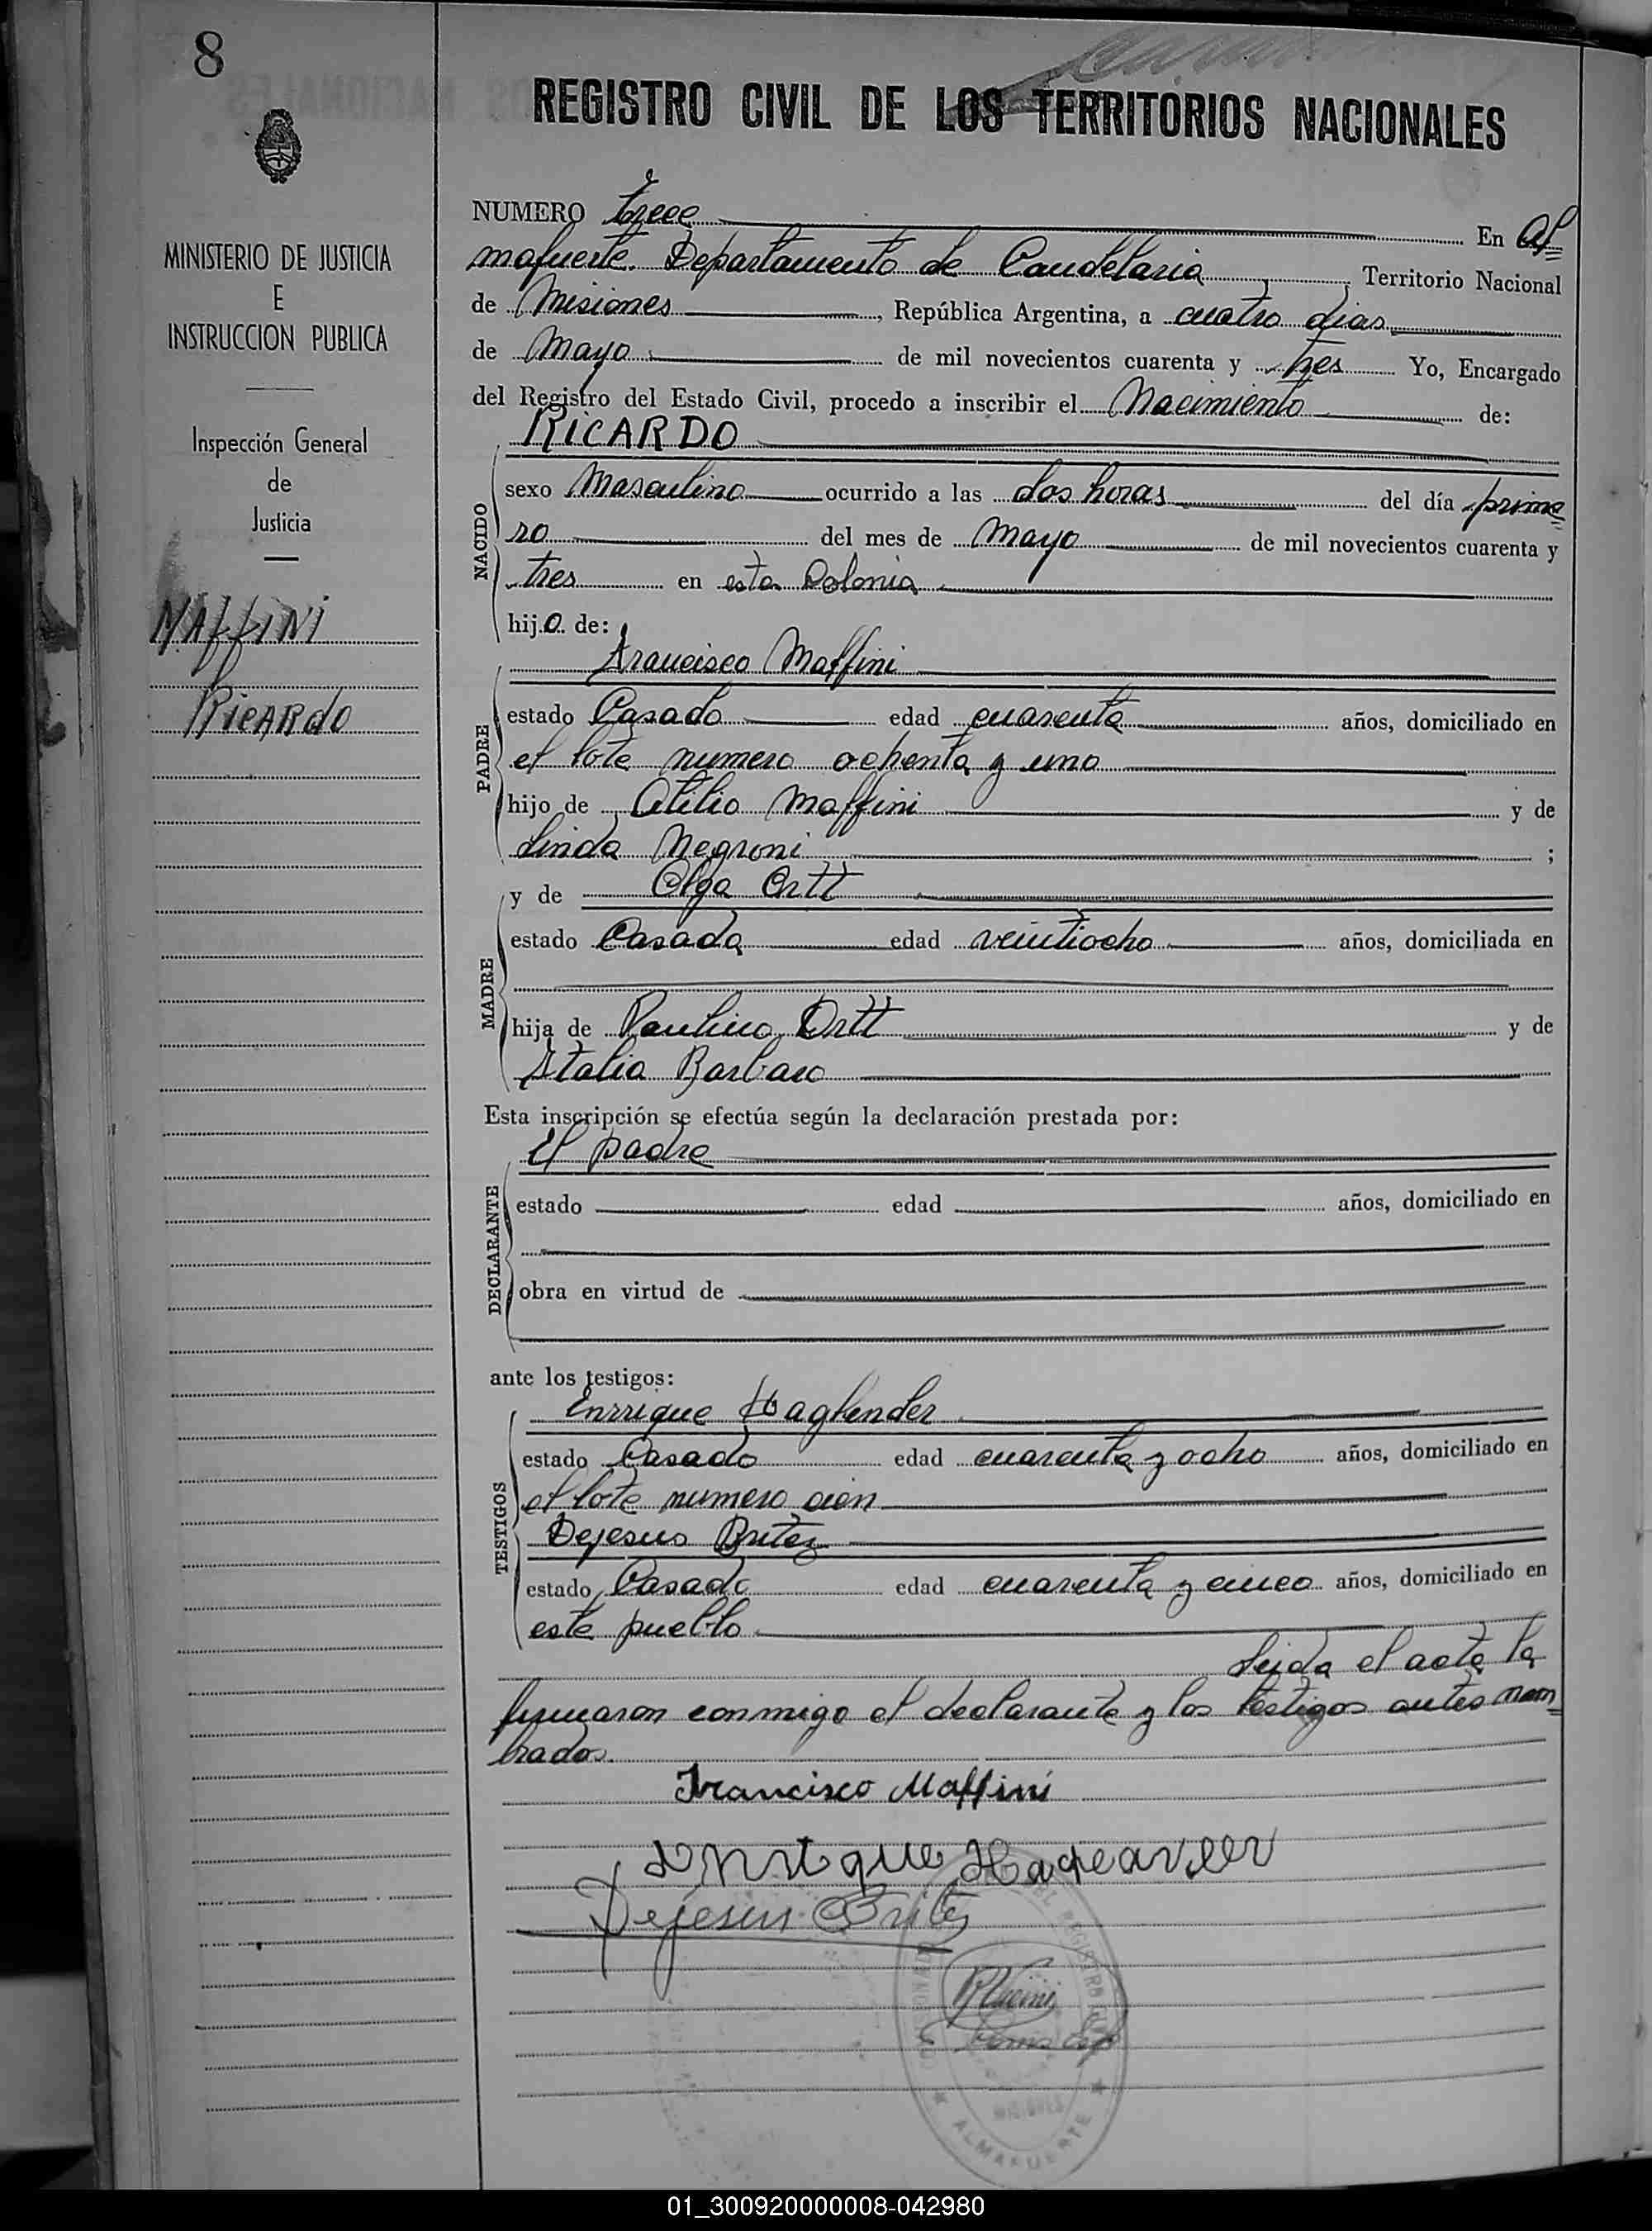 8
REGISTRO CIVIL DE LOS TERRITORIOS NACIONALES
MINISTERIO DE JUSTICIA
E
INSTRUCCION PUBLICA
Inspección General
de
Justicia
MAFFINI
RICARdO
NUMERO trece En Al=
mafuerte. Departamento de Candelaria, Territorio Nacional
de Misiones, República Argentina, a cuatro dias
de Mayo de mil novecientos cuarenta y tres Yo, Encargado
del Registro del Estado Civil, procedo a inscribir el Nacimiento de:
RICARDO
NACIDO
sexo Masculino ocurrido a las dos horas del día prime=
ro del mes de Mayo de mil novecientos cuarenta y
tres en esta Colonia
hijo de:
Francisco Maffini
PADRE
estado Casado edad cuarenta años, domiciliado en
el lote numero ochenta y uno
hijo de Atilio Maffini y de
Linda Negroni ;
y de Olga Ortt
MADRE
estado Casada edad veintiocho años, domiciliada en
hija de Paulino Ortt y de
Italia Barbaro
Esta inscripción se efectúa según la declaración prestada por:
El padre
DECLARANTE
estado edad años, domiciliado en
obra en virtud de
ante los testigos:
Enrrique Haglender
TESTIGOS
estado Casado edad cuarenta y ocho años, domiciliado en
el lote numero cien
Dejesus Britez
estado Casado edad cuarenta y cinco años, domiciliado en
este pueblo
Leida el acta la
firmaron conmigo el declarante y los testigos antes nom=
brados.
Francisco Maffini
Enrique
Dejesus Britez
ALMAFUERTE
01_300920000008-042980